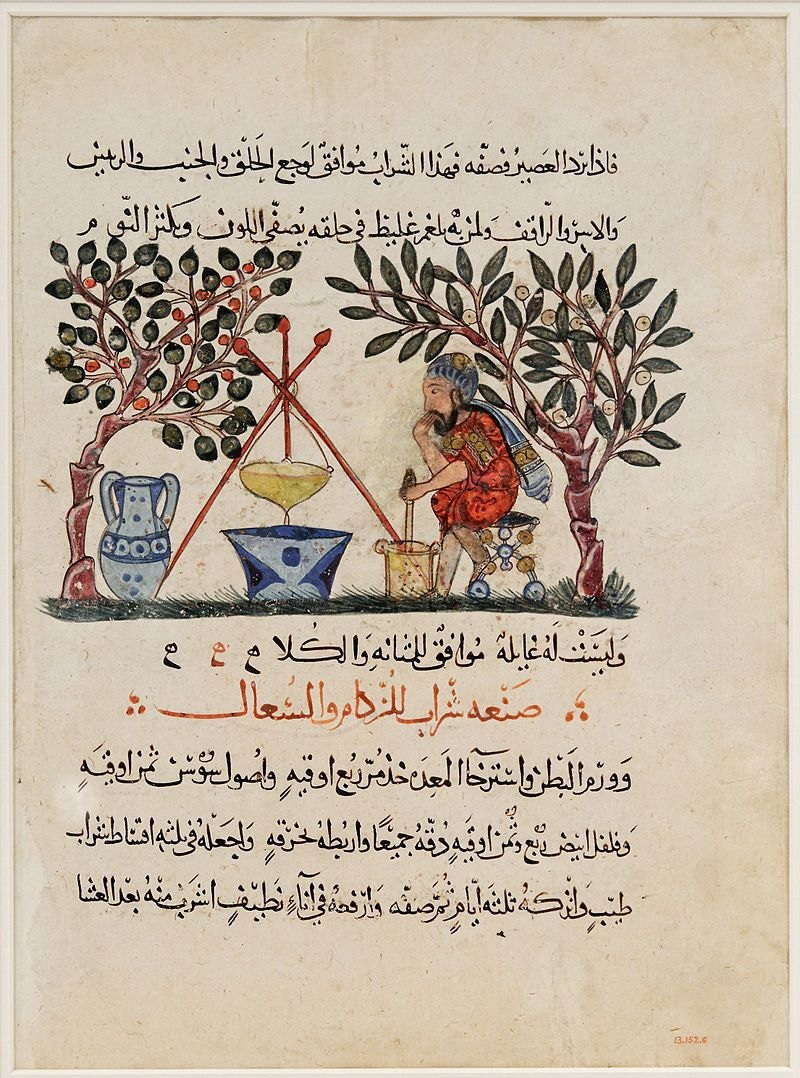 فاذا برد العصير فصفّه فهذا الشراب موافق لوجع الحلق والجنب والرئتين
والاسر والراقف ولمن به بلغم غليظ في حلقه يصفّي اللون ويكثر النوم
وليست له غايلة موافق للمثانه والكلا ح ح ح
صنعه شراب للزكام والسعال
وورم البطن واسترخا المعده خذ مرّ ربع اوقيهٍ واصول سوسن ثمن اوقيهٍ
وفلفل ابيض ربع وثمن اوقيهٍ دقّه جميعًا واربطه بخرقهٍ واجعله في ثلثه اقساط شراب
طيّبٍ واتركه ثلثه ايّامٍ ثمّ صفّه وارفعه في آناءٍ نظيفٍ اشرب منه بعد العشا
13.152.6